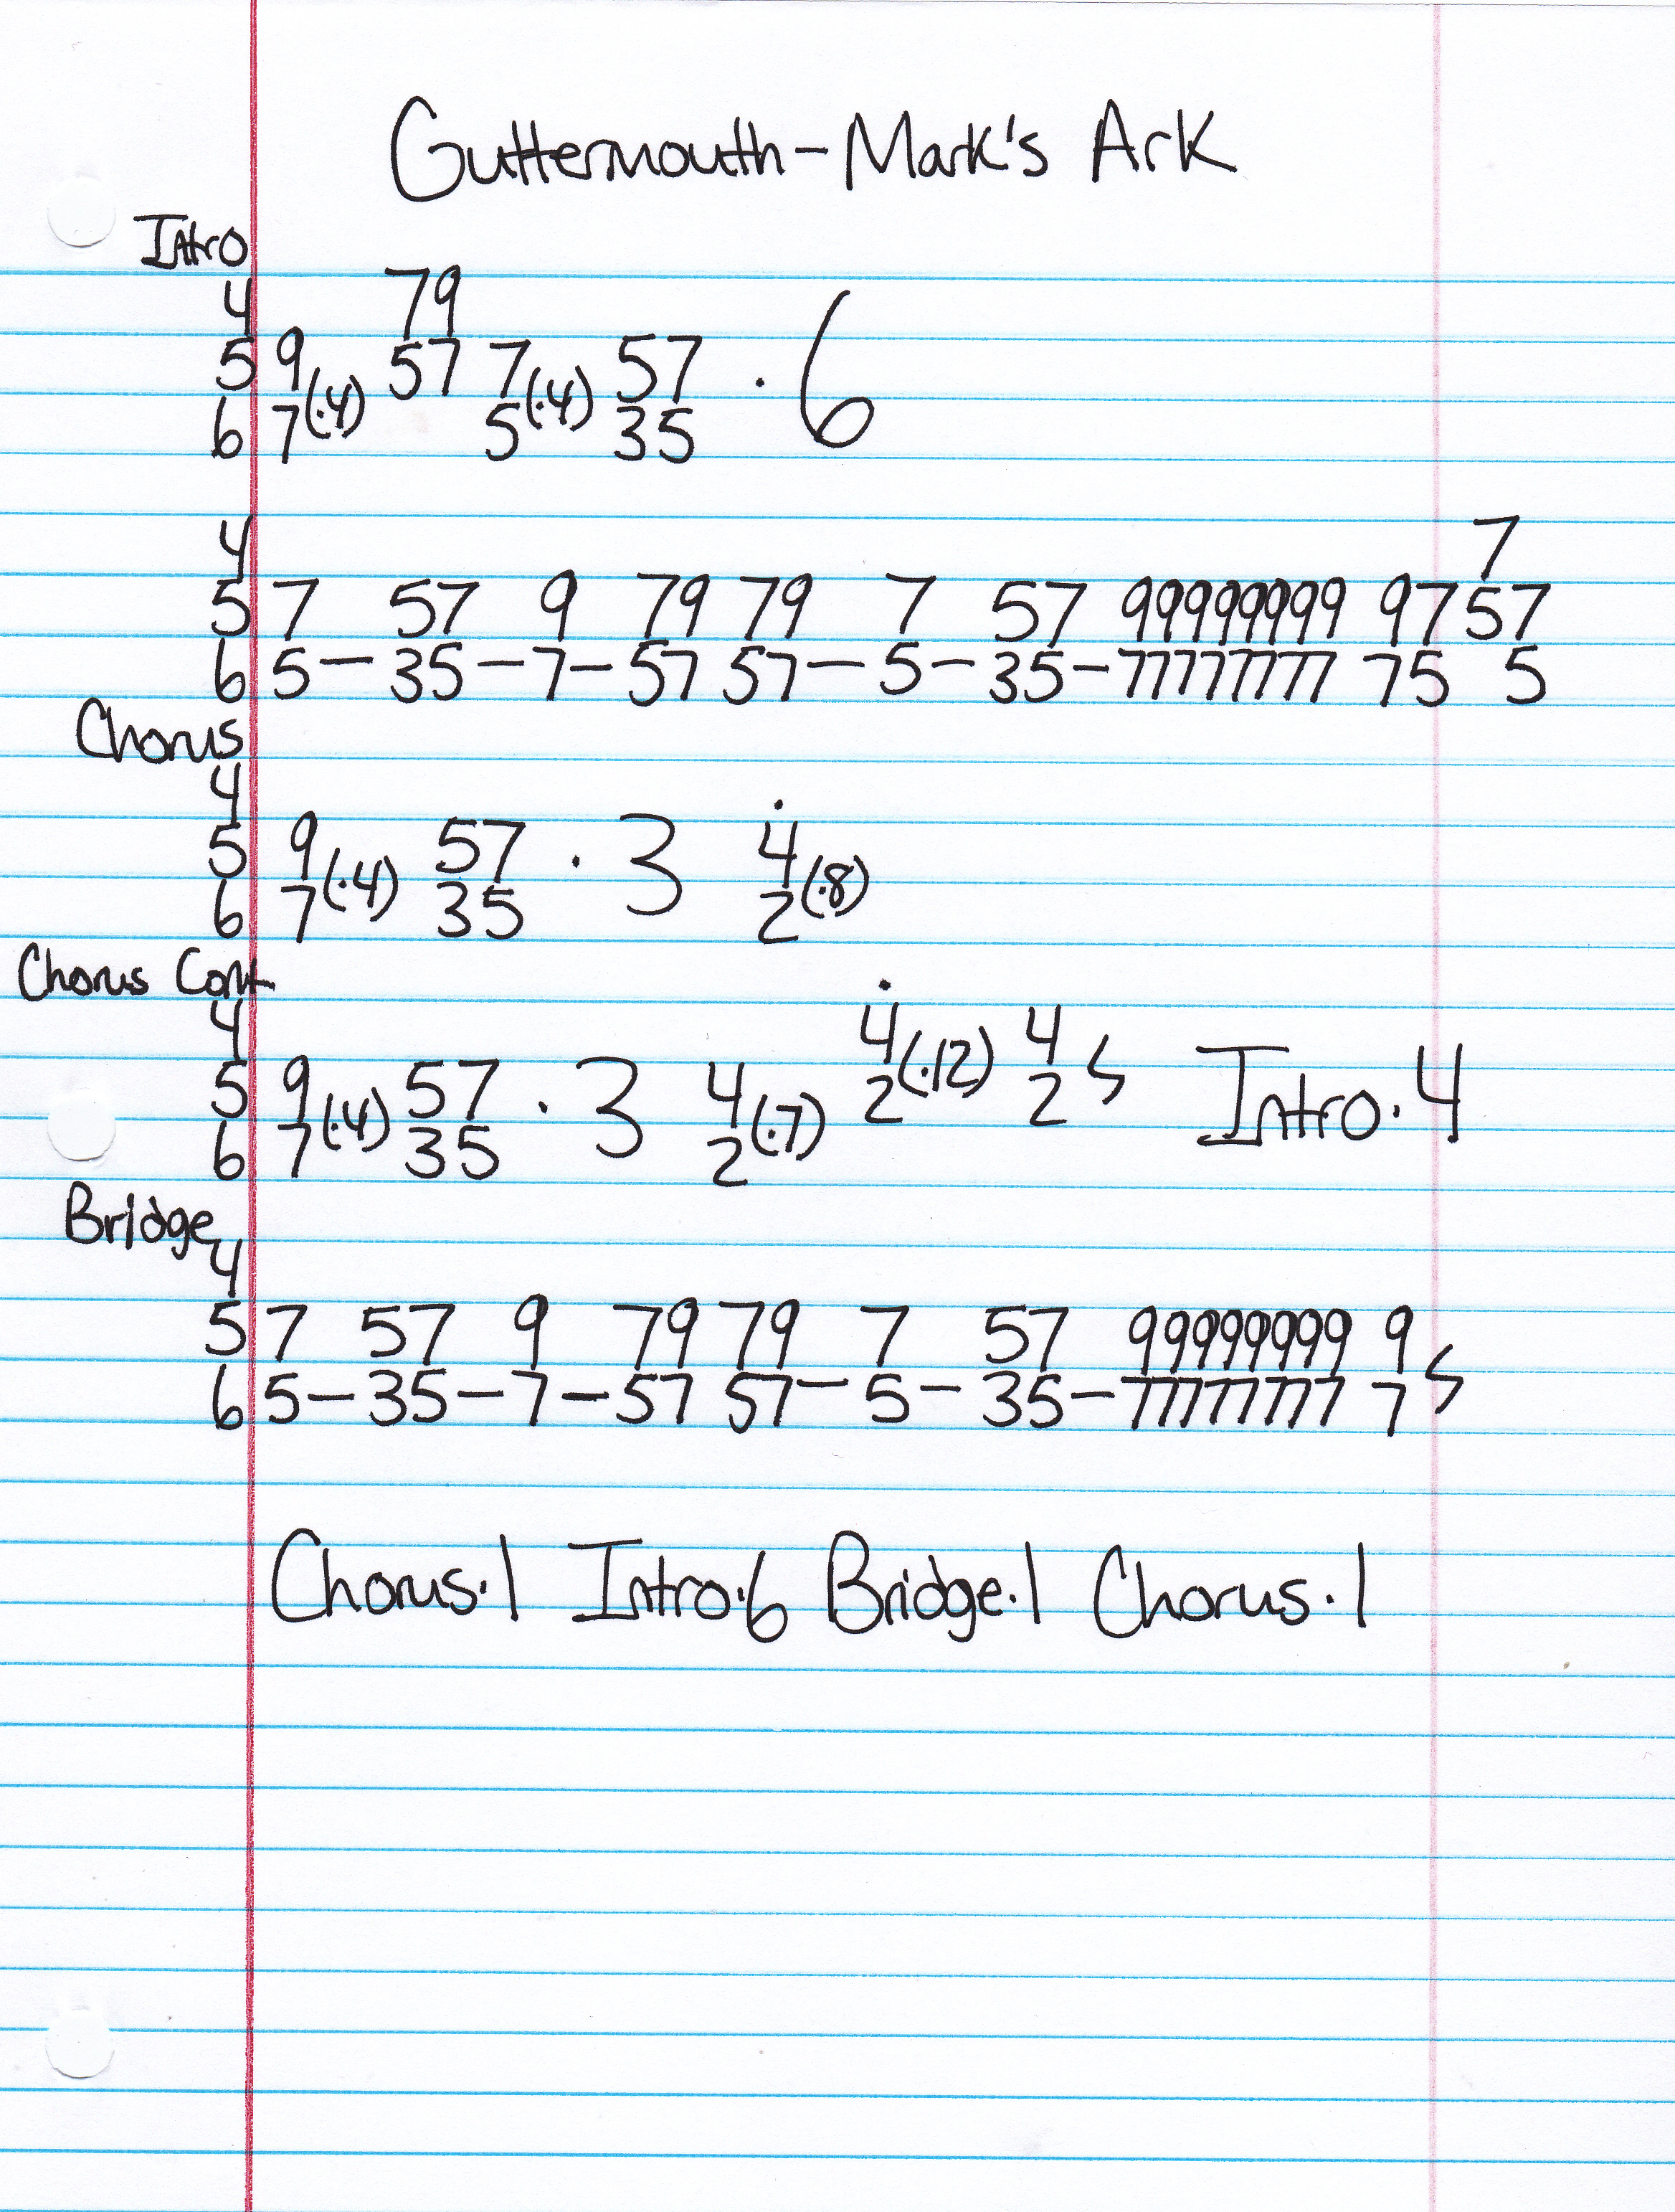 Guttermouth - Mark's Ark
Intro
4 79
5 9 57 7 57
6 7(·4) 5(·4) 35 · 6
4 7
5 7 57 9 79 79 7 57 99999999 97 57
6 5 — 35 — 7 — 57 57 — 5 — 35 — 77777777 75 5
Chorus
4
5 9 57 4
6 7(·4) 35 · 3 2(·8)
Chorus Cont.
4 4(·12) 4
5 9 57 4 2 2
6 7(·4) 35 · 3 2(·7) Intro · 4
Bridge
4
5 7 57 9 79 79 7 57 99999999 9
6 5 — 35 — 7 — 57 57 — 5 — 35 — 77777777 7
Chorus · 1 Intro · 6 Bridge · 1 Chorus · 1